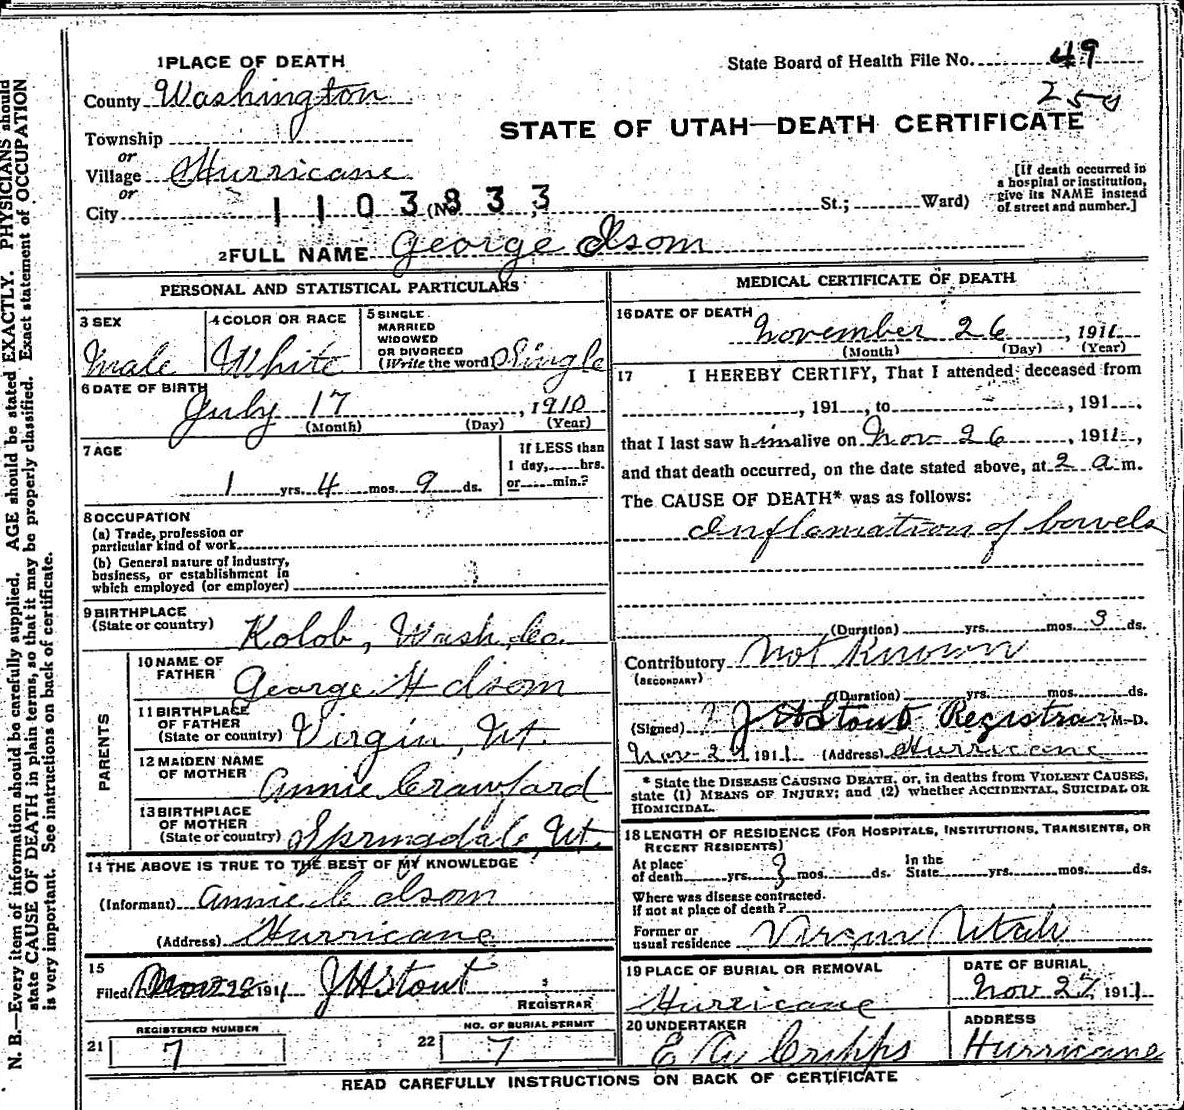 1 PLACE OF DEATH
State Board of Health File No. 49
County Washington
250
STATE OF UTAH—DEATH CERTIFICATE
Township
or
Village Hurricane
or
City (No. St.; Ward)
1 1 0 3 8 3 3
[If death occurred in
a hospital or institution,
give its NAME instead
of street and number.]
2 FULL NAME George Isom
PERSONAL AND STATISTICAL PARTICULARS
3 SEX
Male
4 COLOR OR RACE
White
5 SINGLE
MARRIED
WIDOWED
OR DIVORCED
(Write the word) Single
6 DATE OF BIRTH
July 17, 1910
(Month) (Day) (Year)
7 AGE
1 yrs. 4 mos. 9 ds.
If LESS than
1 day, hrs.
or min.?
8 OCCUPATION
(a) Trade, profession or
particular kind of work
(b) General nature of industry,
business, or establishment in
which employed (or employer)
9 BIRTHPLACE
(State or country) Kolob, Wash, Co.
PARENTS
10 NAME OF
FATHER George H Isom
11 BIRTHPLACE
OF FATHER
(State or country) Virgin, Ut.
12 MAIDEN NAME
OF MOTHER Annie Crawford
13 BIRTHPLACE
OF MOTHER
(State or country) Springdale, Ut.
14 THE ABOVE IS TRUE TO THE BEST OF MY KNOWLEDGE
(Informant) Annie C Isom
(Address) Hurricane
15
Filed Nov 28 1911 J H Stout
REGISTRAR
REGISTERED NUMBER
21 7
NO. OF BURIAL PERMIT
22 7
MEDICAL CERTIFICATE OF DEATH
16 DATE OF DEATH
November 26, 1911
(Month) (Day) (Year)
17 I HEREBY CERTIFY, That I attended deceased from
, 191 , to , 191 .
that I last saw him alive on Nov 26, 1911,
and that death occurred, on the date stated above, at 2 a m.
The CAUSE OF DEATH* was as follows:
Inflamiation of bowels
(Duration) yrs. mos. 3 ds.
Contributory Not Known
(SECONDARY)
(Duration) yrs. mos. ds.
(Signed) J H Stout Registrar M-D.
Nov 1911 (Address) Hurricane
* State the DISEASE CAUSING DEATH, or, in deaths from VIOLENT CAUSES,
state (1) MEANS OF INJURY; and (2) whether ACCIDENTAL, SUICIDAL OR
HOMICIDAL.
18 LENGTH OF RESIDENCE (FOR HOSPITALS, INSTITUTIONS, TRANSIENTS, OR
RECENT RESIDENTS)
At place
of death yrs. 3 mos. ds.
In the
State yrs. mos. ds.
Where was disease contracted.
if not at place of death?
Former or
usual residence Virgin Utah
19 PLACE OF BURIAL OR REMOVAL
Hurricane
DATE OF BURIAL
Nov 27, 1911
20 UNDERTAKER
E A Cripps
ADDRESS
Hurricane
READ CAREFULLY INSTRUCTIONS ON BACK OF CERTIFICATE
N. B.—Every item of information should be carefully supplied. AGE should be stated EXACTLY. PHYSICIANS should
state CAUSE OF DEATH in plain terms, so that it may be properly classified. Exact statement of OCCUPATION
is very important. See instructions on back of certificate.